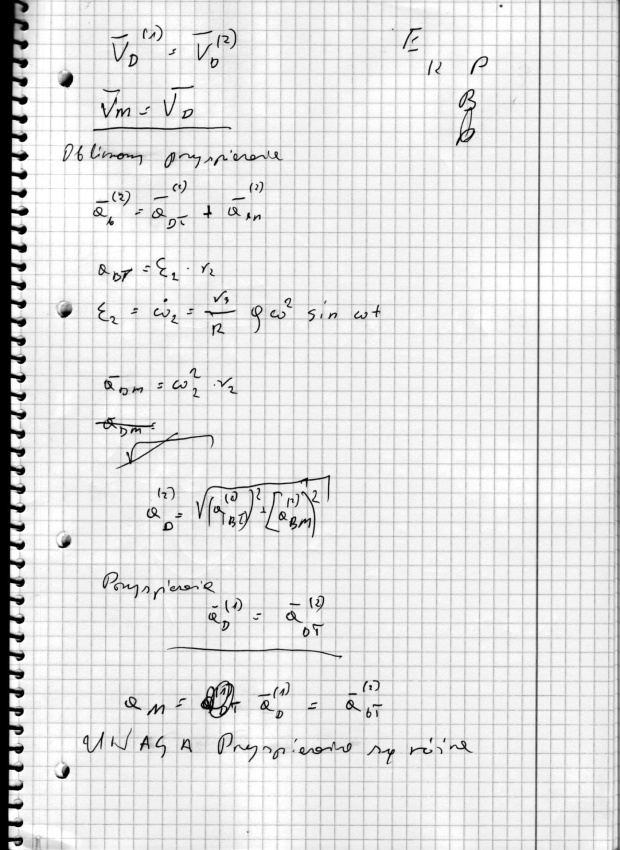 V̄_D^(1) = V̄_D^(2)
V̄_M = V̄_D
Obliczamy przyspieszenie
ā_D^(2) = ā_DT^(2) + ā_Dn^(2)
a_DT = ε_2 · r_2
ε_2 = ω̇_2 = r_3/R φ ω² sin ωt
ā_DM = ω_2² · r_2
a_DM =
√
a_D^(2) = √((a_BT^(2))² + [a_BM^(2)]²)
Przyspieszenie
ā_D^(1) = ā_DT^(2)
a_M = ā_D^(1) = ā_DT^(2)
UWAGA Przyspieszenia są różne
E
K P
B
D